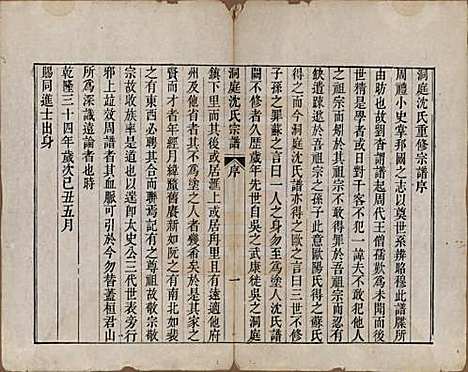 洞庭沈氏重修宗譜序
周禮小史掌邦國之志以奠世系辨昭穆此譜牒所
由昉也故劉杳謂譜起周代王僧孺歎不可及焉後
世稍是學者或日官不絕一諱夫不敢犯人之祖宗
鉄遺蹤逆不敢得罪於吾祖宗而忍有
吾祖宗之孫子此意歐陽氏得之蘇氏
得之而今洞庭沈氏譜亦得之歐之言曰三世不修
子之罪蘇之言曰一人之身勿至爲塗人沈氏譜
闕不修者久歷歲年先世自吳之武康徙吳之洞庭
洞庭沈氏宗譜
序
一
鎮下里而其後或居滙上或居冉里且有遠適他府
州及他省者其不為塗之人者幾希矣於是其家之
賢而才者年經月緯釐舊廣新如阮之有南北如裴
之有東西必聯焉知祖之有尊祖故敬宗敬
宗故收族率是道也以遠紹太史公三代世表旁行
邪上故效周譜者其血脈可引於今勿替蓋桓君山
所爲深識遠論者也時
乾隆三十四年歲次己丑五月
賜同進士出身